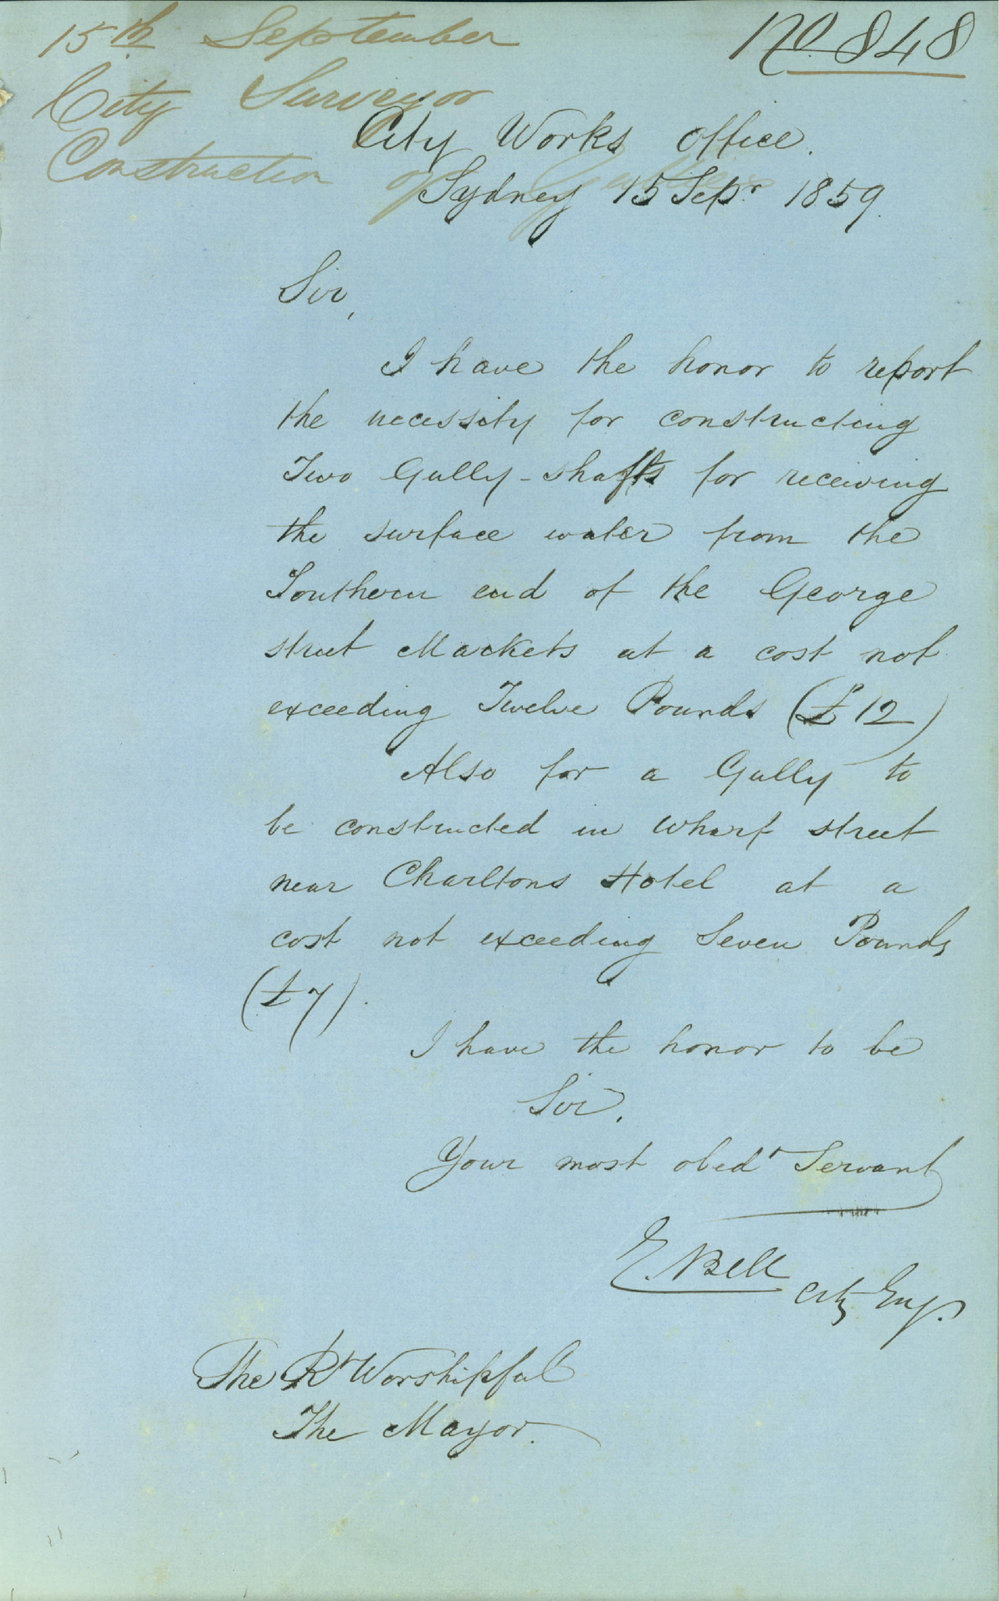 15th September
No 848
City Surveyor
Construction of Gullies
City Works Office.
Sydney 15 Sepr 1859.
Sir,
I have the honor to report
the necessity for constructing
Two Gully-shafts for receiving
the surface water from the
Southern end of the George
street Markets at a cost not
exceeding Twelve Pounds (£12)
Also for a Gully to
be constructed in Wharf street
near Charltons Hotel at a
cost not exceeding Seven Pounds
(£7).
I have the honor to be
Sir,
Your most obedt Servant
E. Bell
City Engr.
The Rt Worshipful
The Mayor.